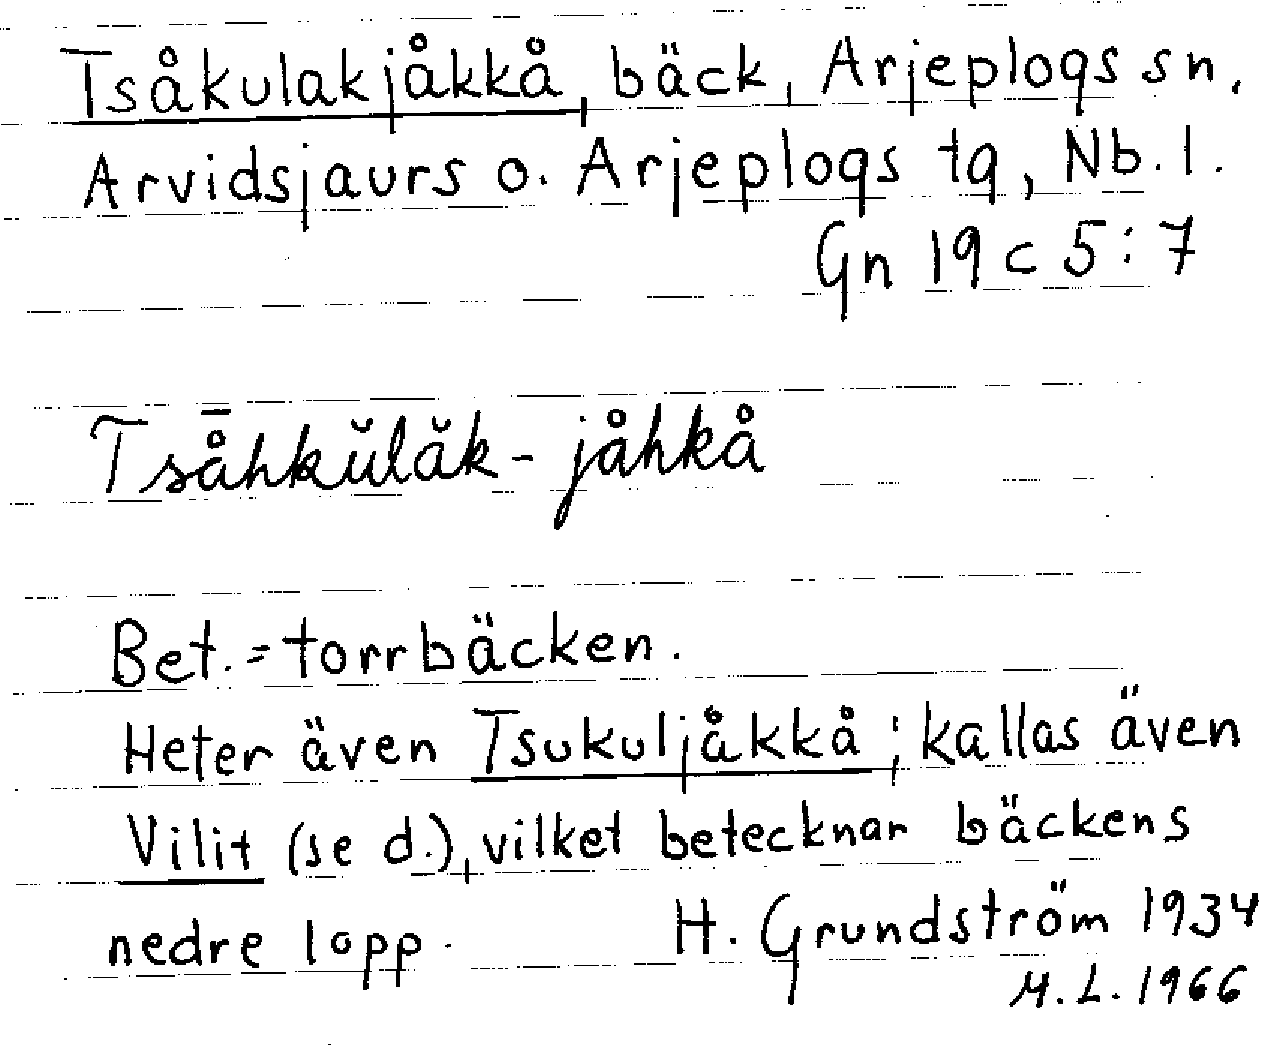 Tsåkulakjåkkå, bäck, Arjeplogs sn.
Arvidsjaurs o. Arjeplogs tg, Nb. l.
Gn 19 c 5:7
Tså̄hkŭlăk-jåhkå
Bet. = torrbäcken.
Heter även Tsukuljåkkå; kallas även
Vilit (se d.), vilket betecknar bäckens
nedre lopp.
H. Grundström 1934
M. L. 1966